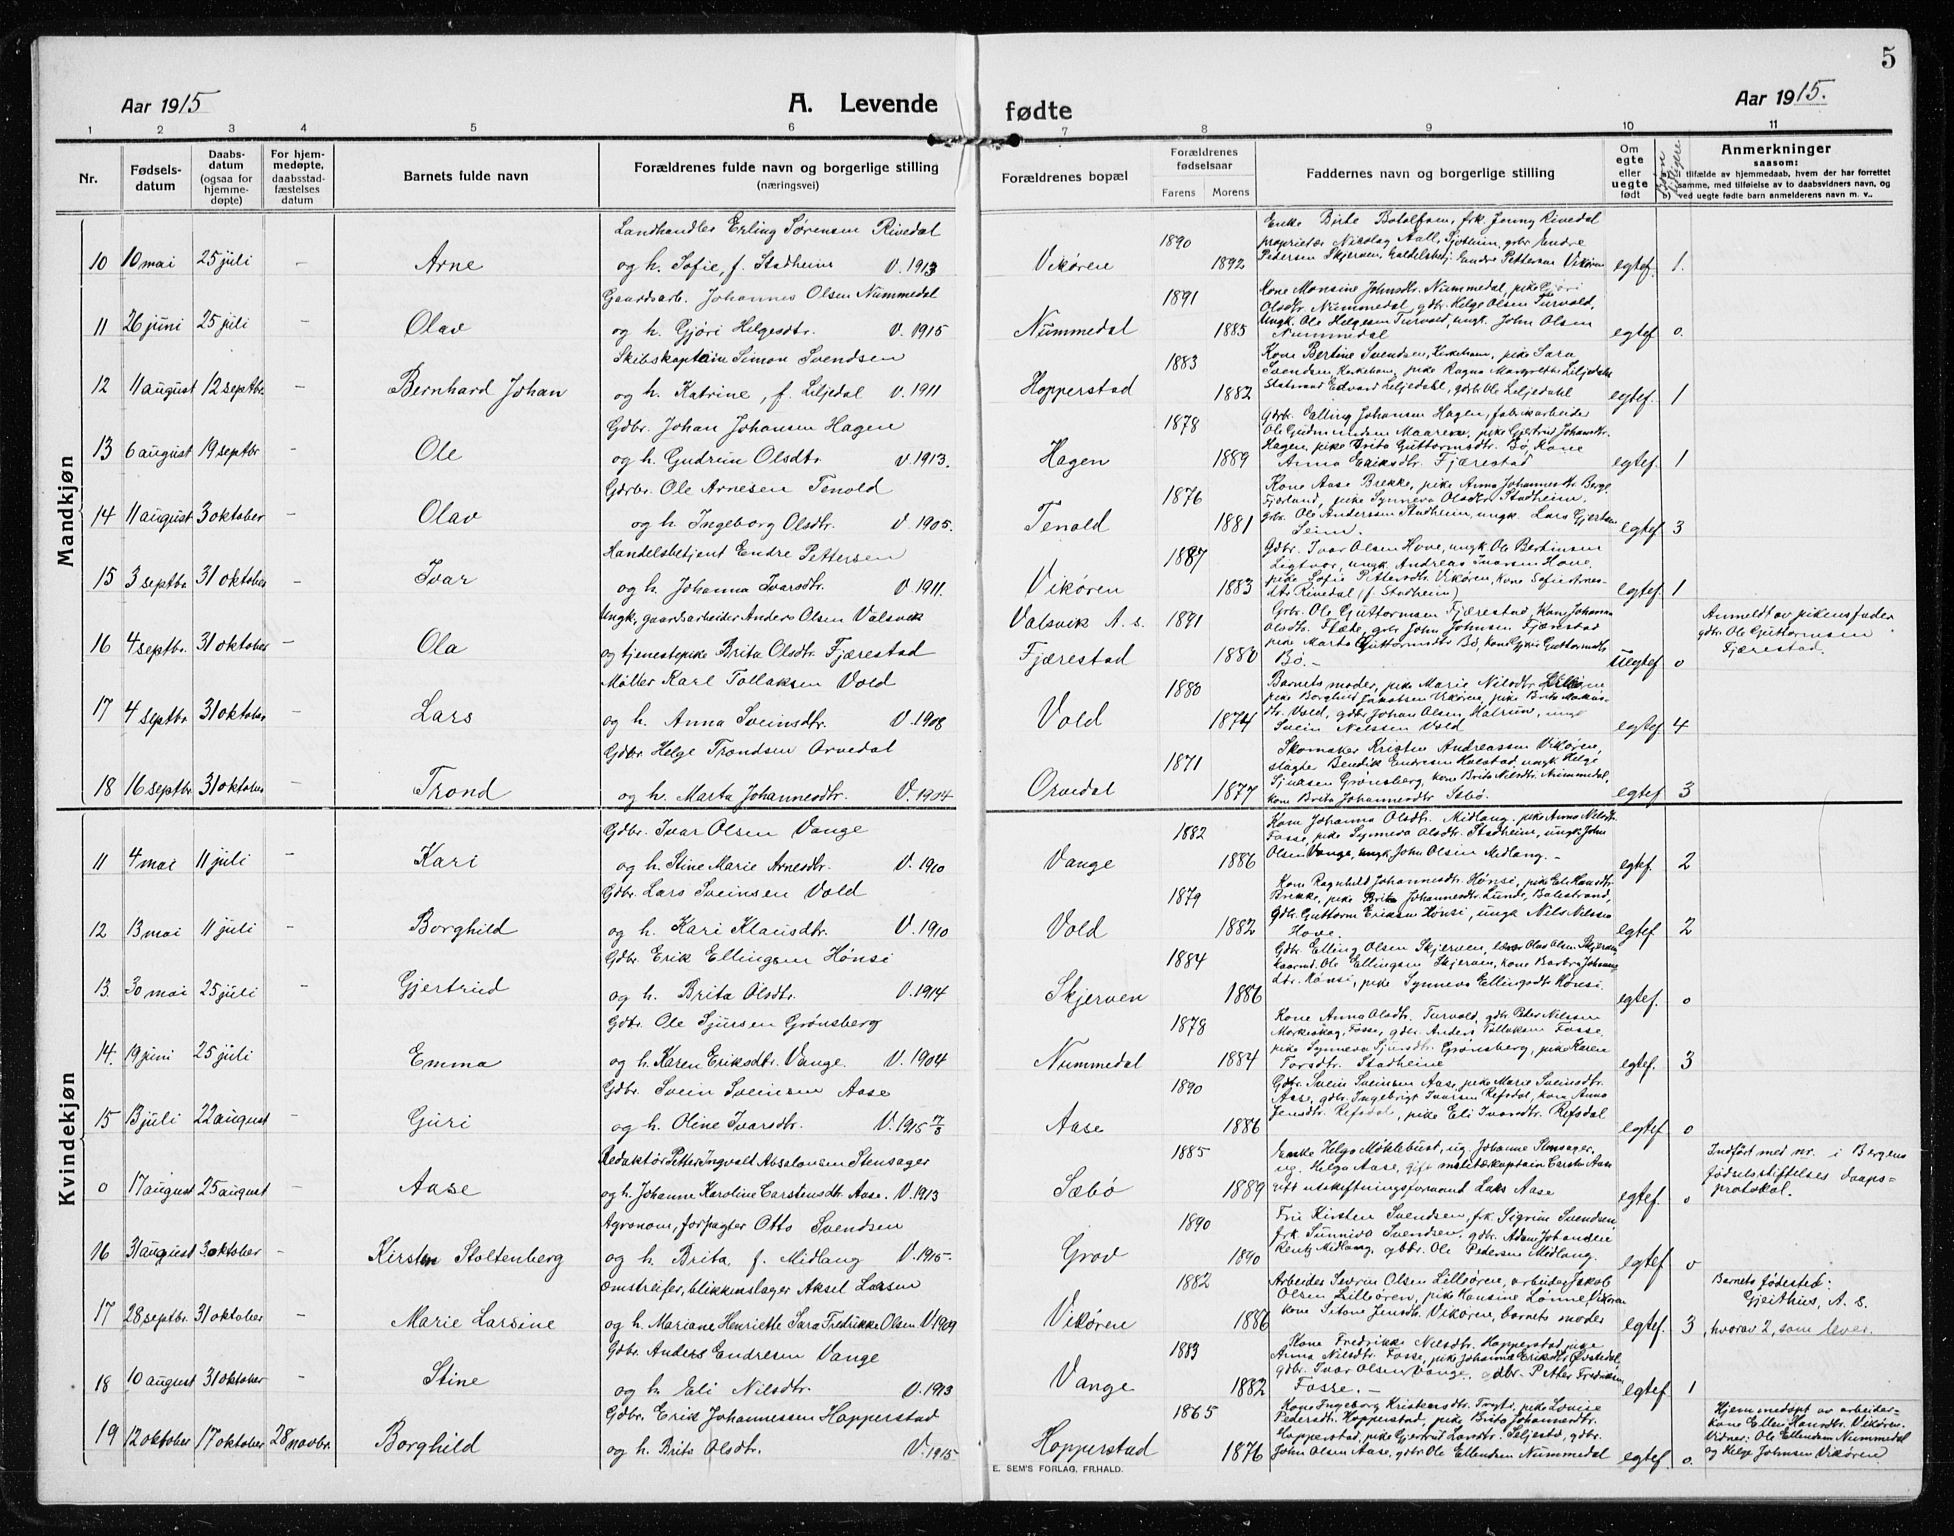 5
Aar 1915
A. Levende
fødte
Aar 1915.
1 2 3 4 5 6 7 8 9 10 11
Nr.
Fødsels-
datum
Daabs-
datum
(ogsaa for
hjemme-
døpte)
For hjem-
medøpte,
daabsstad-
fæstelses
datum
Barnets fulde navn
Forældrenes fulde navn og borgerlige stilling
(næringsvei)
Forældrenes bopæl
Forældrenes
fødselsaar
Farens Morens
Faddernes navn og borgerlige stilling
Om
egte
eller
uegte
født
Anmerkninger
saasom:
i tilfælde av hjemmedaab, hvem der har forrettet
samme, med tilføielse av to daabsvidners navn, og
b) ved uegte fødte barn anmelderens navn m. v..
Mandkjøn
Landhandler Erling Sørensen Rivedal
10 10 mai 25 juli - Arne og h. Sofie, f. Stadheim V. 1913 Vikøren 1890 1892 egtef. 1.
Enke Birte Botolfsen, frk. Jenny Rivedal
proprietær Nicolag Aall, Sjotheim, gdbr. Endre
Pedersen Skjerven, Handelsbetj. Endre Pettersen Vikøren
Gaardsarb. Johannes Olsen Nummedal
11 26 juni 25 juli - Olav og h. Gjøri Helgesdtr. V. 1915 Nummedal 1891 1885 egtef 0.
Kone Monsine Johnsdtr. Nummedal, pike Gjøri
Olsdtr. Nummedal, gdbr. Helge Olsen Turvold,
Ungk. Ole Helgesen Turvold, ungk. John Olsen
Nummedal
Skibskaptein Simon Svendsen
12 11 august 12 septbr. - Bernhard Johan og h. Katrine, f. Liljedal V. 1911 Hopperstad 1883 1882 egtef. 1
Kone Bertine Svendsen, Kirkehom, pike Sara
Svendsen, Kirkehom, pike Ragna Margrethe Liljedahl
Statsraad Edvard Liljedahl, gdbr. Ole Liljedahl
Gdbr. Johan Johansen Hagen
13 6 august 19 septbr - Ole og h. Gudrun Olsdtr. V. 1913. Hagen 1878 1889 egtef. 1
Gdbr. Elling Johansen Hagen, fabrikarbeider
Ole Gudmundsen Maaren, pike Gjertrud Johansdtr.
Hagen, pike Brita Guttormsdtr. Bø, Kone
Anna Eriksdtr. Fjærestad
Gdbr. Ole Arnesen Tenold
14 11 august 3 oktober - Olav og h. Ingeborg Olsdtr. V. 1905. Tenold 1876 1881 egtef 3
Kone Aase Brekke, pike Anna Johannesdtr. Berge
Fjærland, pike Synneva Olsdtr. Stadheim,
gbr. Ole Anderssen Stadheim, ungk. Lars Gjertsen
Seim.
Handelsbetjent Endre Pettersen
15 3 septbr. 31 oktober - Ivar og h. Johanna Ivarsdtr. V 1911. Vikøren 1887 1883 egtef. 1
Gdbr. Ivar Olsen Hove, ungk. Ole Bertinsen
Ligtvor, ungk. Andreas Ivarsen Hove,
pike Sofie Pettersdtr. Vikøren, kone Sofie Arnes-
dtr. Rivedal (f. Stadheim)
Ungk, gaardsarbeider Anders Olsen Valsvik
16 4 septbr. 31 oktober - Ola og tjenestepike Brita Olsdtr. Fjærestad Valsvik A. s. Fjærestad 1891 1880 uegtef 0
Gbr. Ole Guttormsen Fjærestad, Kone Johanna
Olsdtr. Flæte, gbr John Johnsen Fjærestad
pike Marta Guttormsdtr. Bø, kone Guttormsdtr.
Bø. -
Anmeldt av pikens fader
gdbr. Ole Guttormsen
Fjærestad.
Møller Karl Tollaksen Vold
17 4 septbr. 31 oktober - Lars og h. Anna Sveinsdtr. V. 1908 Vold 1880 1874 egtef 4
Barnets moder, pike Marie Nilsdtr.
pike Borghild Jakobsen Vikøren, pike Brita
dtr. Vold, gdbr Johan Olsen, ungk
Svein Nilssen Vold
Gdbr. Helge Trondsen Orvedal
18 16 septbr 31 oktober - Trond og h. Marta Johannesdtr. V. 1904 Orvedal 1871 1877 egtef 3
Skomaker Kristen Andreassen Vikøren,
slagter Bendik Endresen Halstad, ungk. Helge
Sjursen Grønsberg, kone Brita Nilsdtr. Nummedal,
kone Brita Johannesdtr. Stebø.
Kvindekjøn
Gdbr. Ivar Olsen Vange
11 4 mai 11 juli - Kari og h. Stine Marie Arnesdtr. V. 1910 Vange 1882 1886 egtef. 2
Kone Johanna Olsdtr. Midlang, pike Anna Nilsdtr.
Fosse, pike Synneva Olsdtr. Stadheim, ungk. John
Olsen Vange, ungk. John Olsen Midlang. -
Gdbr. Lars Sveinsen Vold
12 13 mai 11 juli - Borghild og h. Kari Klausdtr. V. 1910 Vold 1879 1882 egtef. 2
Kone Ragnhild Johannesdtr. Hønsi, pike Eli Hansdtr.
Brekke, pike Brita Johannesdtr. Lunde, Balestrand,
Gdbr. Guttorm Eriksen Hønsi, ungk Nils Nilssen
Hove.
Gdbr. Erik Ellingsen Hønsi
13. 30 mai 25 juli - Gjertrud og h. Brita Olsdtr. V. 1914 Skjerven 1884 1886 egtef. 0
Gdbr Elling Olsen Skjerven, lærer Olav Olsen Skjerven,
kaarmd. Ole Ellingsen Skjerven, kone Barbra Johannes-
dtr. Hønsi, pike Synneva Ellingsdtr Hønsi.
Gdbr. Ole Sjursen Grønsberg
14. 19 juni 25 juli - Emma og h. Karen Eriksdtr. Vange. V. 1904 Nummedal 1878 1884 egtef. 3
Kone Anna Olsdtr. Turvold, gdbr Peter Nilssen
Morkeskog, Fosse, gdbr. Anders Tollaksen Fosse
pike Synneva Sjursdtr. Grønsberg, pike Karen
Torsdtr. Stadheim
Gdbr. Svein Sveinsen Aase
15 13 juli 22 august - Guri og h. Oline Ivarsdtr. V. 1915 Aase 1890 1886 egtef. 0
Gdbr. Svein Sveinsen Aase, pike Marie Sveinsdtr.
Aase, gdbr. Ingebrigt Ivarsen Refsdal, kone Anna
Jensdtr. Refsdal, pike Eli Ivarsdtr. Refsdal
Redaktør Petter Ingvald Absalonsen Stensager
0 17 august 25 august - Aase og h. Johanne Karoline Carstensdtr. Aase. V. 1913 Sæbø 1885 1889 egtef. 0
Enke Helga Møklebust, ug. Johanne Stensager,
ug. Helga Aase, gift militærkaptein Carsten Aase
gift utskiftningsformand Lars Aase
Indført med nr. i Bergens
fødselsstiftelses daaps=
protokol.
Agronom, forpagter Otto Svendsen
16 31 august 3 oktober - Kirsten Stoltenberg og h. Brita, f. Midlang V. 1915- Grov 1890 1890 egtef 0
Fru Kirsten Svendsen, frk. Sigrun Svendsen,
frk. Sunniva Svendsen, gdbr. Adam Johansen
Rentz Midlang, gdbr. Ole Pedersen Midlang.
Omstreifer, blikkenslager Aksel Larsen
17 28 septbr. 31 oktober Marie Larsine og h. Mariane Henriette Sara Fredrikke Olsen V. 1909 Vikøren 1882 1886 egtef. 3
Arbeider Severin Olsen Lilleøren, arbeider Jakob
Olsen Lilleøren, pike Hansine Lønne, Vikøren
kone Jensdtr. Vikøren, barnets moder
Barnets fødested:
Gjeithus, A. s.
hvorav 2, som lever.
Gdbr. Anders Endresen Vange
18 10 august 31 oktober Stine og h. Eli Nilsdtr. V. 1913 Vange 1883 1882 egtef. 1
Kone Fredrikke Nilsdtr. Hopperstad, pike
Anna Nilsdtr. Fosse, pike Johanna Eriksdtr. Øvstedal,
gdbr. Ivar Olsen Vange, gdbr. Petter Fredriksen
Fosse. -
Gdbr. Erik Johannessen Hopperstad
19 12 oktober 17 oktober 28 novbr. Borghild og h. Brita Olsdtr. V. 1915- Hopperstad 1865 1876 egtef. 0.
Kone Ingeborg Kristensdtr. Tryti, pike Lovise
Pedersdtr. Hopperstad, pike Brita Johannesdtr.
Hopperstad, pike Gjertrud Larsdtr. Seljestø, gdbr.
John Olsen Aase, gdbr. Ole Ellendsen Nummedal
Hjemmedøpt av arbeider-
kone Ellen Hansdtr. Vikøren.
Vidner: Ole Ellendsen Nummedal
og Helge Johnsen Vikøren.
E. SEM'S FORLAG, FR.HALD.